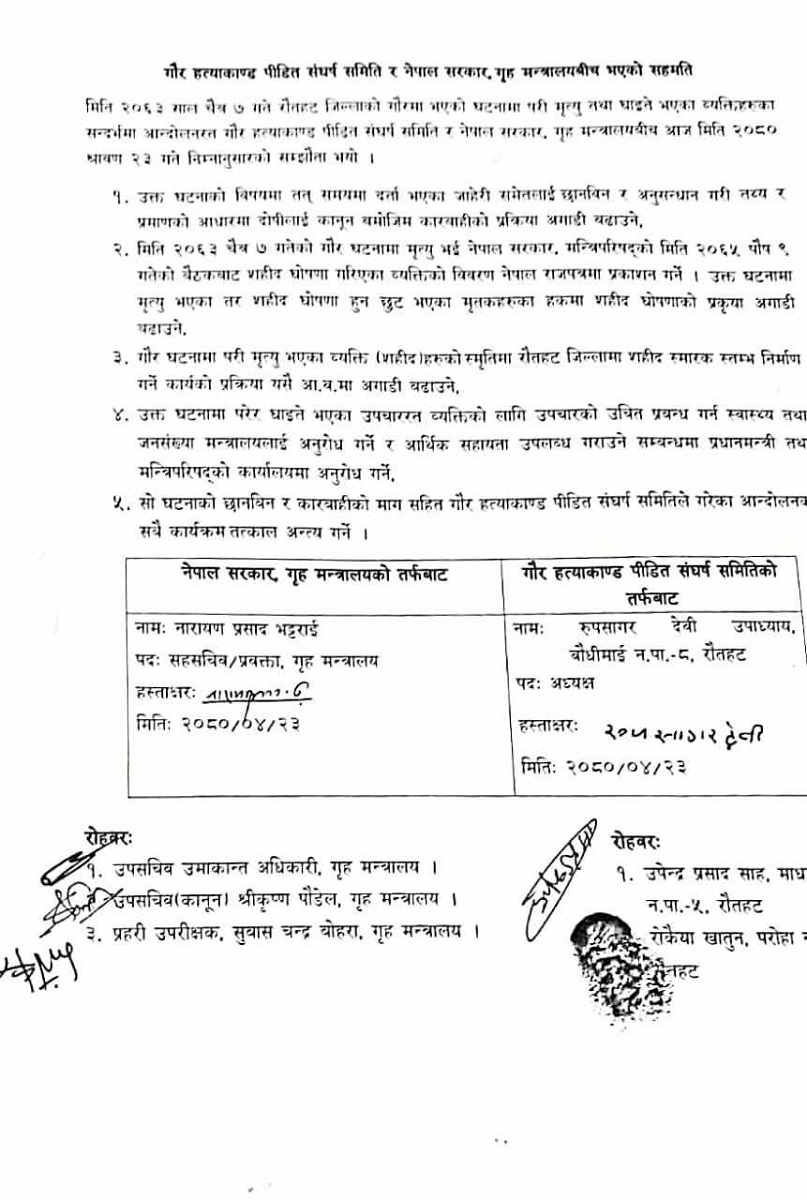 गौर हत्याकाण्ड पीडित संघर्ष समिति र नेपाल सरकार, गृह मन्त्रालयबीच भएको सहमति
मिति २०६३ साल चैत्र ७ गते रौतहट जिल्लाको गौरमा भएको घटनामा परी मृत्यु तथा घाइते भएका व्यक्तिहरुका
सन्दर्भमा आन्दोलनरत गौर हत्याकाण्ड पीडित संघर्ष समिति र नेपाल सरकार, गृह मन्त्रालयबीच आज मिति २०८०
श्रावण २३ गते निम्नानुसारको सम्झौता भयो ।
१. उक्त घटनाको विषयमा तत् समयमा दर्ता भएका जाहेरी समेतलाई छानविन र अनुसन्धान गरी तथ्य र
प्रमाणको आधारमा दोषीलाई कानून बमोजिम कारवाहीको प्रक्रिया अगाडी बढाउने,
२. मिति २०६३ चैत्र ७ गतेको गौर घटनामा मृत्यु भई नेपाल सरकार, मन्त्रिपरिषद्को मिति २०६५ पौष ९
गतेको बैठकबाट शहीद घोषणा गरिएका व्यक्तिको विवरण नेपाल राजपत्रमा प्रकाशन गर्ने । उक्त घटनामा
मृत्यु भएका तर शहीद घोषणा हुन छुट भएका मृतकहरुका हकमा शहीद घोषणाको प्रकृया अगाडी
बढाउने,
३. गौर घटनामा परी मृत्यु भएका व्यक्ति (शहीद)हरुको स्मृतिमा रौतहट जिल्लामा शहीद स्मारक स्तम्भ निर्माण
गर्ने कार्यको प्रक्रिया यसै आ.व.मा अगाडी बढाउने,
४. उक्त घटनामा परेर घाइते भएका उपचाररत व्यक्तिको लागि उपचारको उचित प्रबन्ध गर्न स्वास्थ्य तथा
जनसंख्या मन्त्रालयलाई अनुरोध गर्ने र आर्थिक सहायता उपलब्ध गराउने सम्बन्धमा प्रधानमन्त्री तथ
मन्त्रिपरिषद्को कार्यालयमा अनुरोध गर्ने,
५. सो घटनाको छानविन र कारवाहीको माग सहित गौर हत्याकाण्ड पीडित संघर्ष समितिले गरेका आन्दोलनक
सबै कार्यक्रम तत्काल अन्त्य गर्ने ।
नेपाल सरकार, गृह मन्त्रालयको तर्फबाट
नामः नारायण प्रसाद भट्टराई
पदः सहसचिव/प्रवक्ता, गृह मन्त्रालय
हस्ताक्षरः
मितिः २०८०/०४/२३
गौर हत्याकाण्ड पीडित संघर्ष समितिको
तर्फबाट
नामः रुपसागर देवी उपाध्याय,
बौधीमाई न.पा.-८, रौतहट
पदः अध्यक्ष
हस्ताक्षरः रुपसागर देवी
मितिः २०८०/०४/२३
रोहवरः
१. उपसचिव उमाकान्त अधिकारी, गृह मन्त्रालय ।
उपसचिव(कानून) श्रीकृष्ण पौडेल, गृह मन्त्रालय ।
३. प्रहरी उपरीक्षक, सुबास चन्द्र बोहरा, गृह मन्त्रालय ।
रोहवरः
१. उपेन्द्र प्रसाद साह, माध
न.पा.-५, रौतहट
रोकैया खातुन, परोहा न